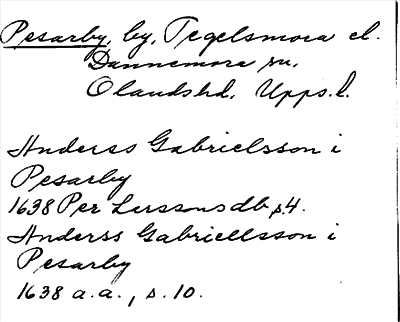 Pesarby, by, Tegelsmora el.
Dannemora sn,
Olandshd, Upps.l.
Anderss Gabrielsson i
Pesarby
1638 Per Larssons db s.4.
Anderss Gabriellsson i
Pesarby
1638 a.a., s.10.